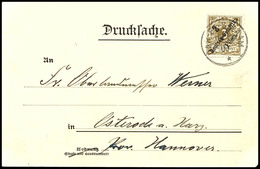 Drucksache.
An
Hr. Oberlandmesser Werner
in Osterode a. Harz
Prov. Hannover.
Wohnung
(Straße und Hausnummer)